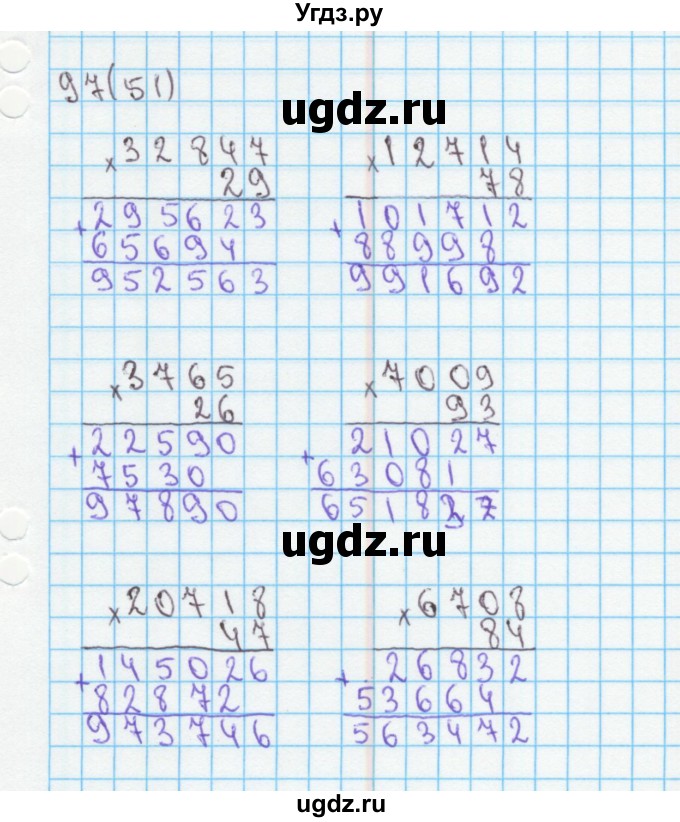 Угдз.ру
97(51)
ugdz.ru
×32847 ×12714
29 78
+295623 +101712
65694 88998
952563 991692
×3765 ×7009
26 93
+22590 +21027
7530 63081
97890 6518
ugdz.ru
×20718 ×6708
47 84
+145026 +26832
82872 53664
973746 563472
ugdz.ru